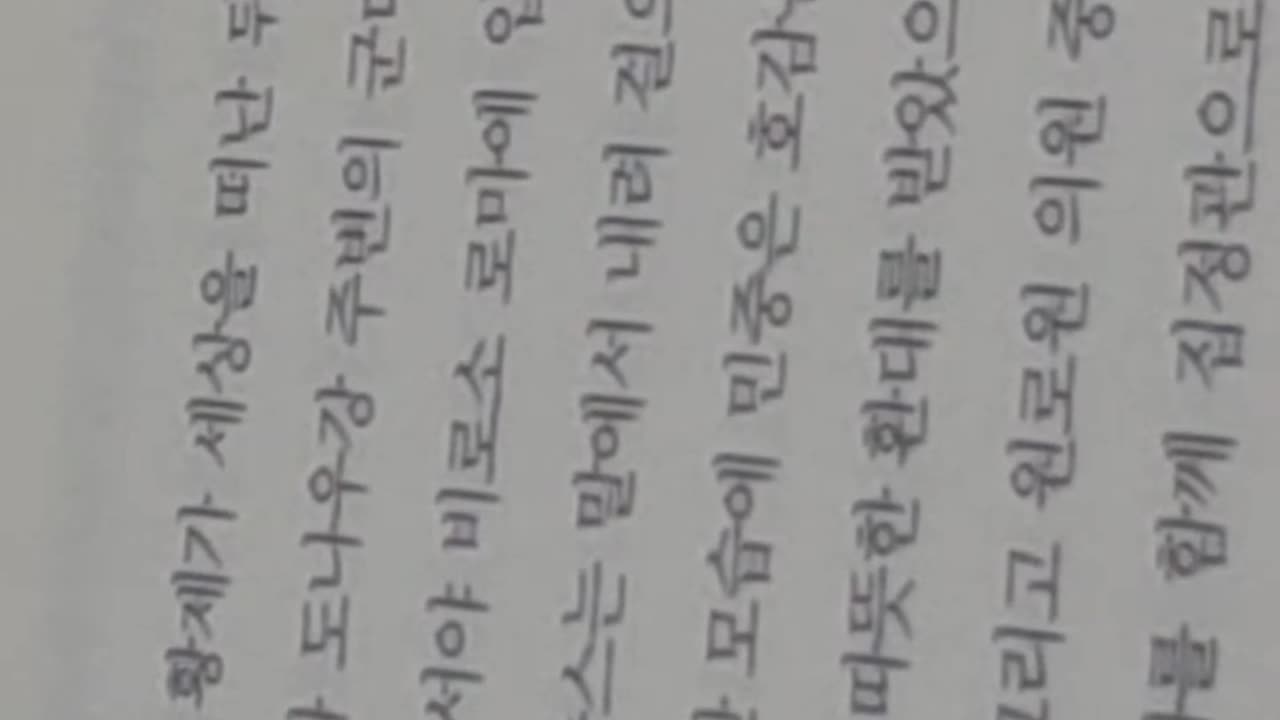 황제가 세상을 떠난
도나우강 주변의
서야 비로소 로마에
스는 말에서 내려
모습에 민중은 호감
따뜻한 환대를 받았으
그리고 원로원 의원 중
를 함께 집정관으로